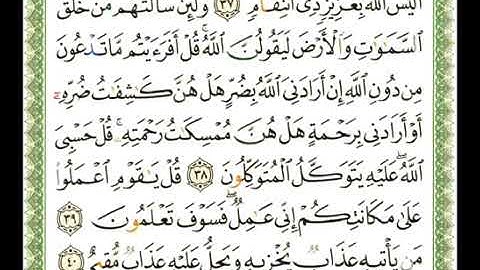 أَلَيْسَ اللَّهُ بِعَزِيزٍ ذِي انتِقَامٍ ٣٧ وَلَئِن سَأَلْتَهُم مَّنْ خَلَقَ
السَّمَٰوَٰتِ وَالْأَرْضَ لَيَقُولُنَّ اللَّهُ ۚ قُلْ أَفَرَءَيْتُم مَّا تَدْعُونَ
مِن دُونِ اللَّهِ إِنْ أَرَادَنِيَ اللَّهُ بِضُرٍّ هَلْ هُنَّ كَٰشِفَٰتُ ضُرِّهِ
أَوْ أَرَادَنِي بِرَحْمَةٍ هَلْ هُنَّ مُمْسِكَٰتُ رَحْمَتِهِ ۚ قُلْ حَسْبِيَ
اللَّهُ ۖ عَلَيْهِ يَتَوَكَّلُ الْمُتَوَكِّلُونَ ٣٨ قُلْ يَٰقَوْمِ اعْمَلُوا
عَلَىٰ مَكَانَتِكُمْ إِنِّي عَٰمِلٌ ۖ فَسَوْفَ تَعْلَمُونَ ٣٩
مَن يَأْتِيهِ عَذَابٌ يُخْزِيهِ وَيَحِلُّ عَلَيْهِ عَذَابٌ مُّقِيمٌ ٤٠